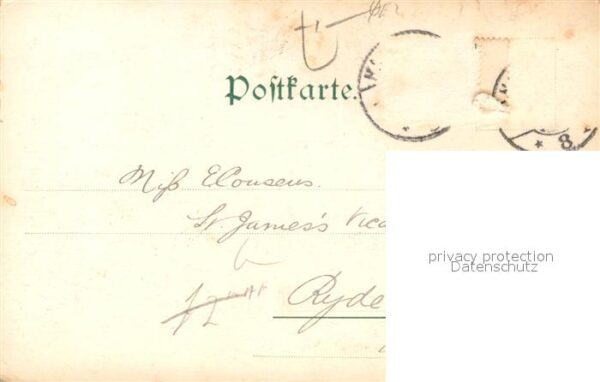 Postkarte.
Miß E Cousens.
St. James's Vica
Ryde
privacy protection
Datenschutz
8